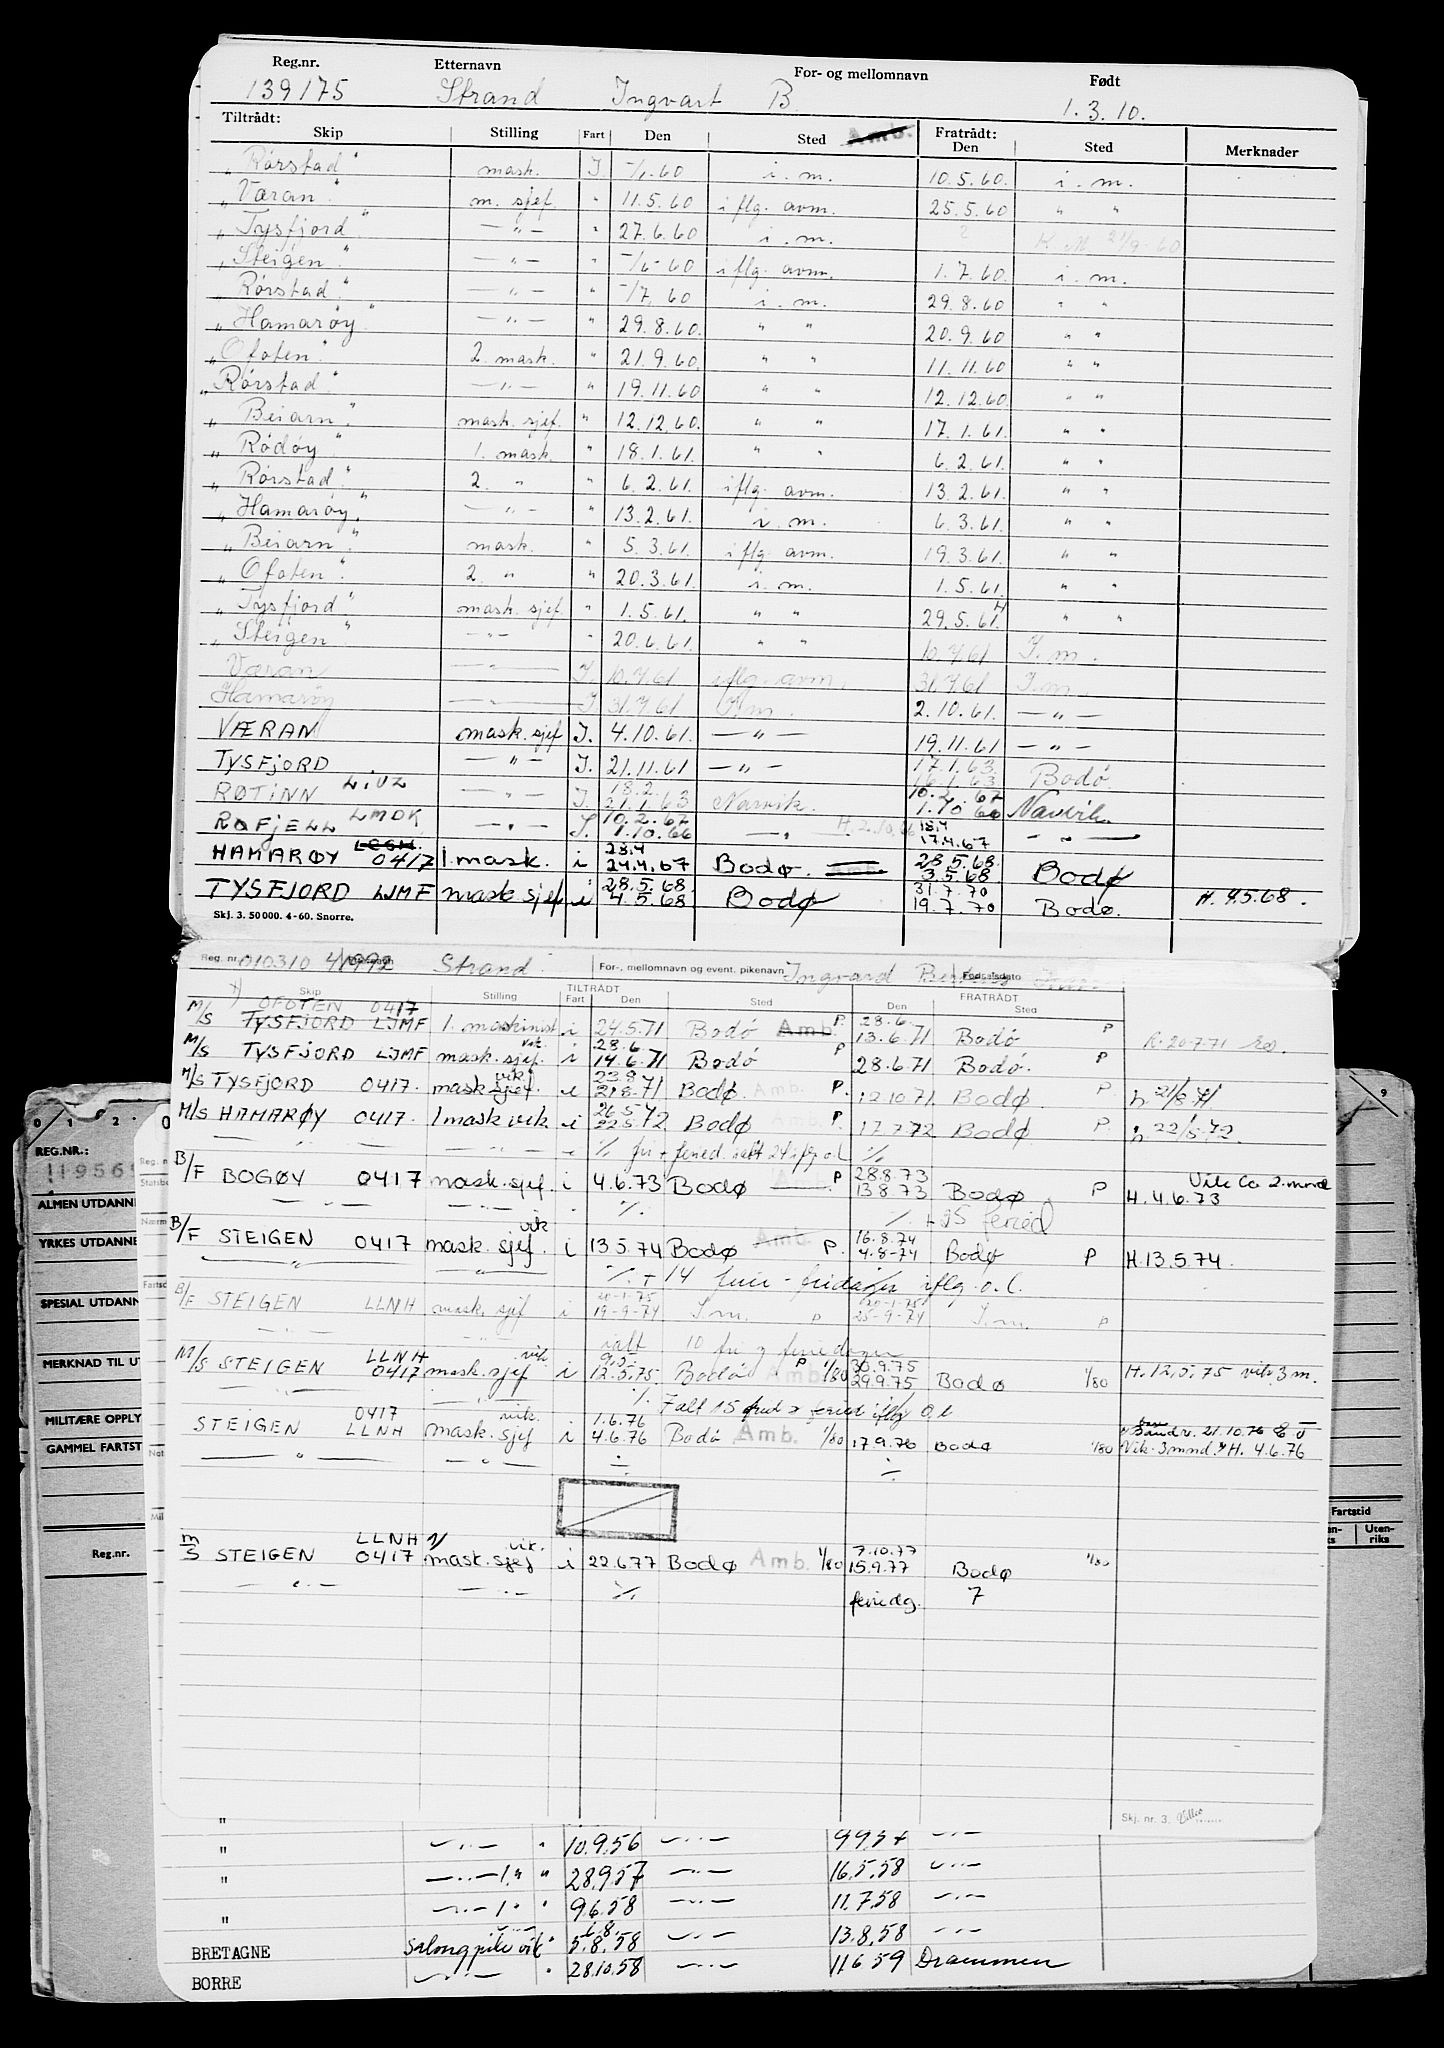 Reg.nr. Etternavn For- og mellomnavn Født
139175 Strand Ingvart B. 1.3.10.
Tiltrådt: Fratrådt:
Skip Stilling Fart Den Sted Amb. Den Sted Merknader
"Rørstad" mask. I. -/1.60 i.m. 10.5.60. i.m.
"Væran" m. sjef " 11.5.60 iflg. avm. 25.5.60 " "
"Tysfjord" —"— " 27.6.60 i.m. ?
"Steigen" —"— " -/6-60 iflg. avm. 1.7.60. i.m.
"Rørstad" —"— " -/7.60 i.m. 29.8.60 " "
"Hamarøy" —"— " 29.8.60. " " 20.9.60 " "
"Ofoten" 2. mask. " 21.9.60. " " 11.11.60 " "
"Rørstad" —"— " 19.11.60 " " 12.12.60. " "
"Beiarn" mask. sjef. " 12.12.60. " " 17.1.61. " "
"Rödøy" 1. mask. " 18.1.61. " " 6.2.61. " "
"Rørstad" 2. " " 6.2.61. iflg. avm. 13.2.61. " "
"Hamarøy" —"— " 13.2.61. i.m. 6.3.61. " "
"Beiarn" mask. " 5.3.61. iflg. avm. 19.3.61. " "
"Ofoten" 2. " " 20.3.61. i.m. 1.5.61. " "
"Tysfjord" mask. sjef. " 1.5.61. " " 29.5.61. " "
"Steigen" —"— " 20.6.61. " " 10.7.61 I.m.
Væran —"— I. 10.7.61 iflg. avm. 31.7.61 I.m.
Hamarøy —"— I. 31.7.61 I.m. 2.10.61. —"—
VÆRAN mask. sjef I. 4.10.61. —"— 19.11.61 —"—
TYSFJORD —"— I. 21.11.61 —"— 17.1.63. 16.1.63 Bodö
RØTINN LIUZ —"— I. 18.2. 21.1.63 Narvik. 10.2.67 1.10.66 Narvik.
ROFJELL LMDK —"— I. 10.2.67 1.10.66 —"— H. 2.10.66 18.4 17.4.67 —"—
HAMARØY 0417 1. mask. i 23.4 24.4.67 Bodø. 28.5.68. 3.5.68. Bodø
TYSFJORD LJMF mask sjef i 28.5.68 4.5.68 Bodø 31.7.70 19.7.70 Bodø. H. 9.5.68.
Skj. 3. 50000. 4-60. Snorre.
Reg. nr. 010310 41992 Strand For-, mellomnavn og event. pikenavn Ingvard Fødselsdato
TILTRÅDT FRATRÅDT
Skip Stilling Fart Den Sted Den Sted
OFOTEN 0417
M/S TYSFJORD LJMF 1. maskinist i 24.5.71 Bodö Amb. P. 28.6. 13.6.71 Bodö P R. 20-7-71
M/S TYSFJORD LJMF mask. sjef. vik. i 28.6 14.6.71 Bodö P 28.6.71 Bodö. P
M/S TYSFJORD 0417. mask sjef. vik i 23.8 21.8.71 Bodø. Amb. P. 12.10.71 Bodø. P. h. 21/8.71
M/S HAMARØY 0417. 1 mask vik i 26.5.72 22.5.72 Bodø Amb. P. 17.7.72 Bodø P. h. 22/5.72.
—"— —"— i % fri + feried. ialt 24 iflg o.l. %
B/F BOGØY 0417 mask. sjef. i 4.6.73 Bodø P 28.8.73 13.8.73 Bodø P Vik Ca 2. mnd H. 4.6.73
—"— —"— %. % +25 feried
B/F STEIGEN 0417 mask. sjef. vik i 13.5.74 Bodø Amb. P. 16.8.74 4.8-74 Bodø P H. 13.5.74.
—"— —"— % + 14 ferie - fridager iflg. o.l.
B/F STEIGEN LLNH mask. sjef i 20-1-75 19-9-74 I.m. P 20-1-75 25-9-74 I.m. P
—"— —"— ialt 10 fri og feriedager
M/S STEIGEN LLNH 0417 mask. sjef vik. i 9.5- 12.5.75. Bodö P Amb. 1/80 30.9.75 29.9.75 Bodø 1/80 H. 12.5.75 vik. 3 m.
—"— —"— %. Ialt 15 frid & feried iflg O.l
STEIGEN 0417 LLNH mask. sjef vik. i 1.6.76 4.6.76 Bodö Amb. 1/80 17.9.76 Bodø 1/80 21.10.76
Vik. 3 mnd. H. 4.6.76
—"— ÷ ÷
m/S STEIGEN LLNH 0417 mask. sjef vik. i 22.6.77 Bodø Amb. 1/80 7.10.77 15.9.77 Bodø 1/80
—"— —"— % feriedg. 7
Skj. nr. 3.
"
" —"— " 10.9.56 —"— 9.9.57 —"—
" —"— 1. " " 28.9.57 —"— 16.5.58 —"—
" —"— 1 " " 9.6.58 —"— 11.7.58 —"—
BRETAGNE Salongpike vik " 6.8. 5.8.58 —"— 13.8.58 —"—
BORRE —"— " 28.10.58 —"— 11.6 59 Drammen
0 1 2
REG.NR.:
ALMEN UTDANNE
YRKES UTDANNE
SPESIAL UTDANN
MERKNAD TIL UT
MILITÆRE OPPLY
GAMMEL FARTST
Reg.nr.
9
Fartstid
Uten-
riks